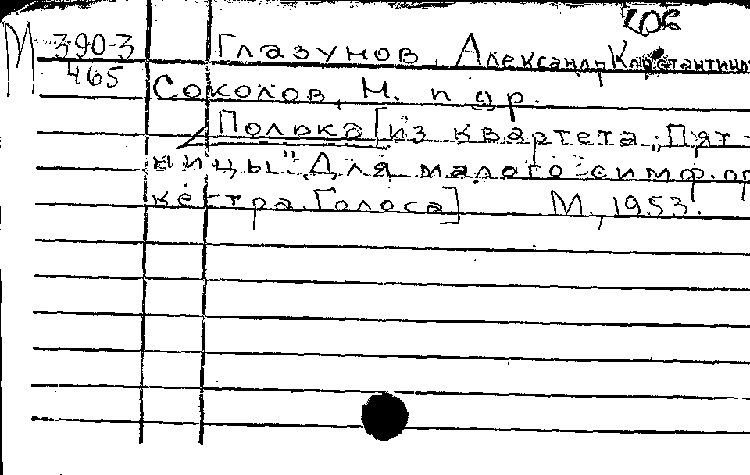 М 390-3
465
Глазунов, Александр Константинов
Соколов, Н. и др.
Полька [из квартета „Пят-
ницы". Для малого симф. ор
кестра. Голоса] М., 1953.